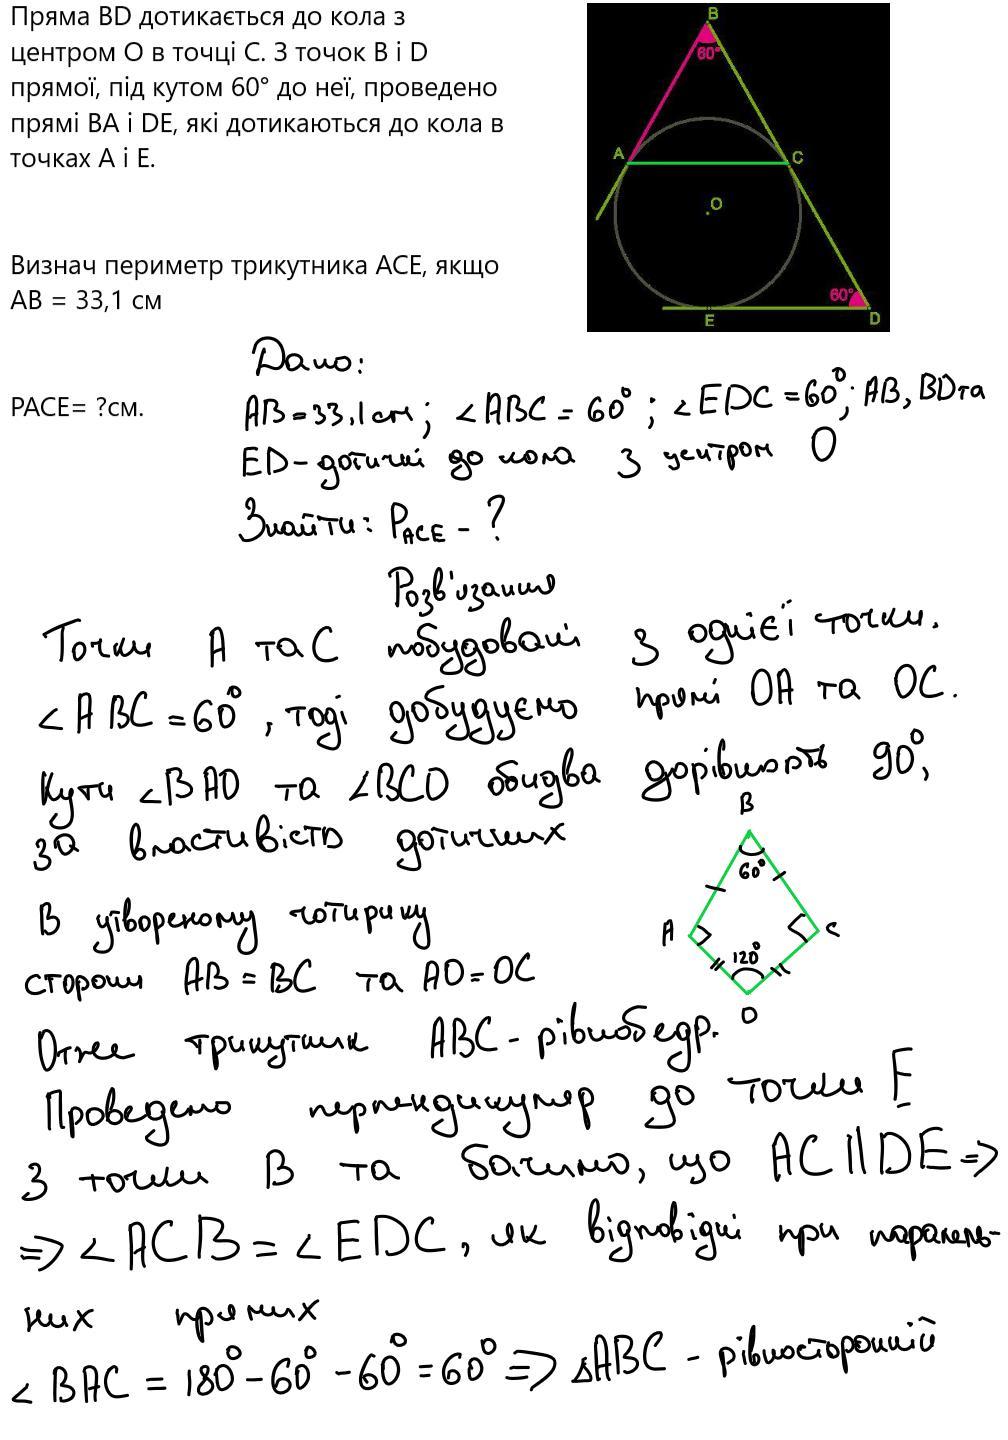 Пряма BD дотикається до кола з
центром O в точці C. З точок B і D
прямої, під кутом 60° до неї, проведено
прямі BA і DE, які дотикаються до кола в
точках A і E.
B
60°
A
C
O
60°
E
D
Визнач периметр трикутника ACE, якщо
AB = 33,1 см
PACE= ?см.
Дано:
AB=33,1см; ∠ABC = 60°; ∠EDC = 60°; AB, BD та
ED-дотичні до кола з центром O
Знайти: PACE - ?
Розв'язання
Точки A та C побудовані з однієї точки.
∠ABC = 60°, тоді добудуємо прямі OA та OC.
Кути ∠BAO та ∠BCO обидва дорівнюють 90°,
за властивістю дотичних
B
60°
A
C
120°
O
В утвореному чотирику
сторони AB = BC та AO=OC
Отже трикутник ABC - рівнобедр.
Проведемо перпендикуляр до точки E
З точки B та бачимо, що AC||DE =>
=> ∠ACB = ∠EDC, як відповідні при паралель-
них прямих
∠BAC = 180° - 60° - 60° = 60° => ΔABC - рівносторонній